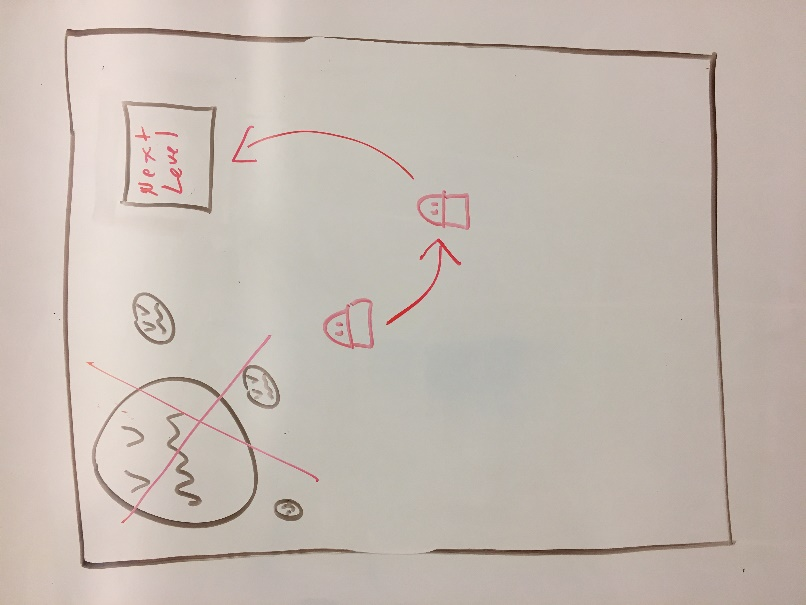 Next
Level